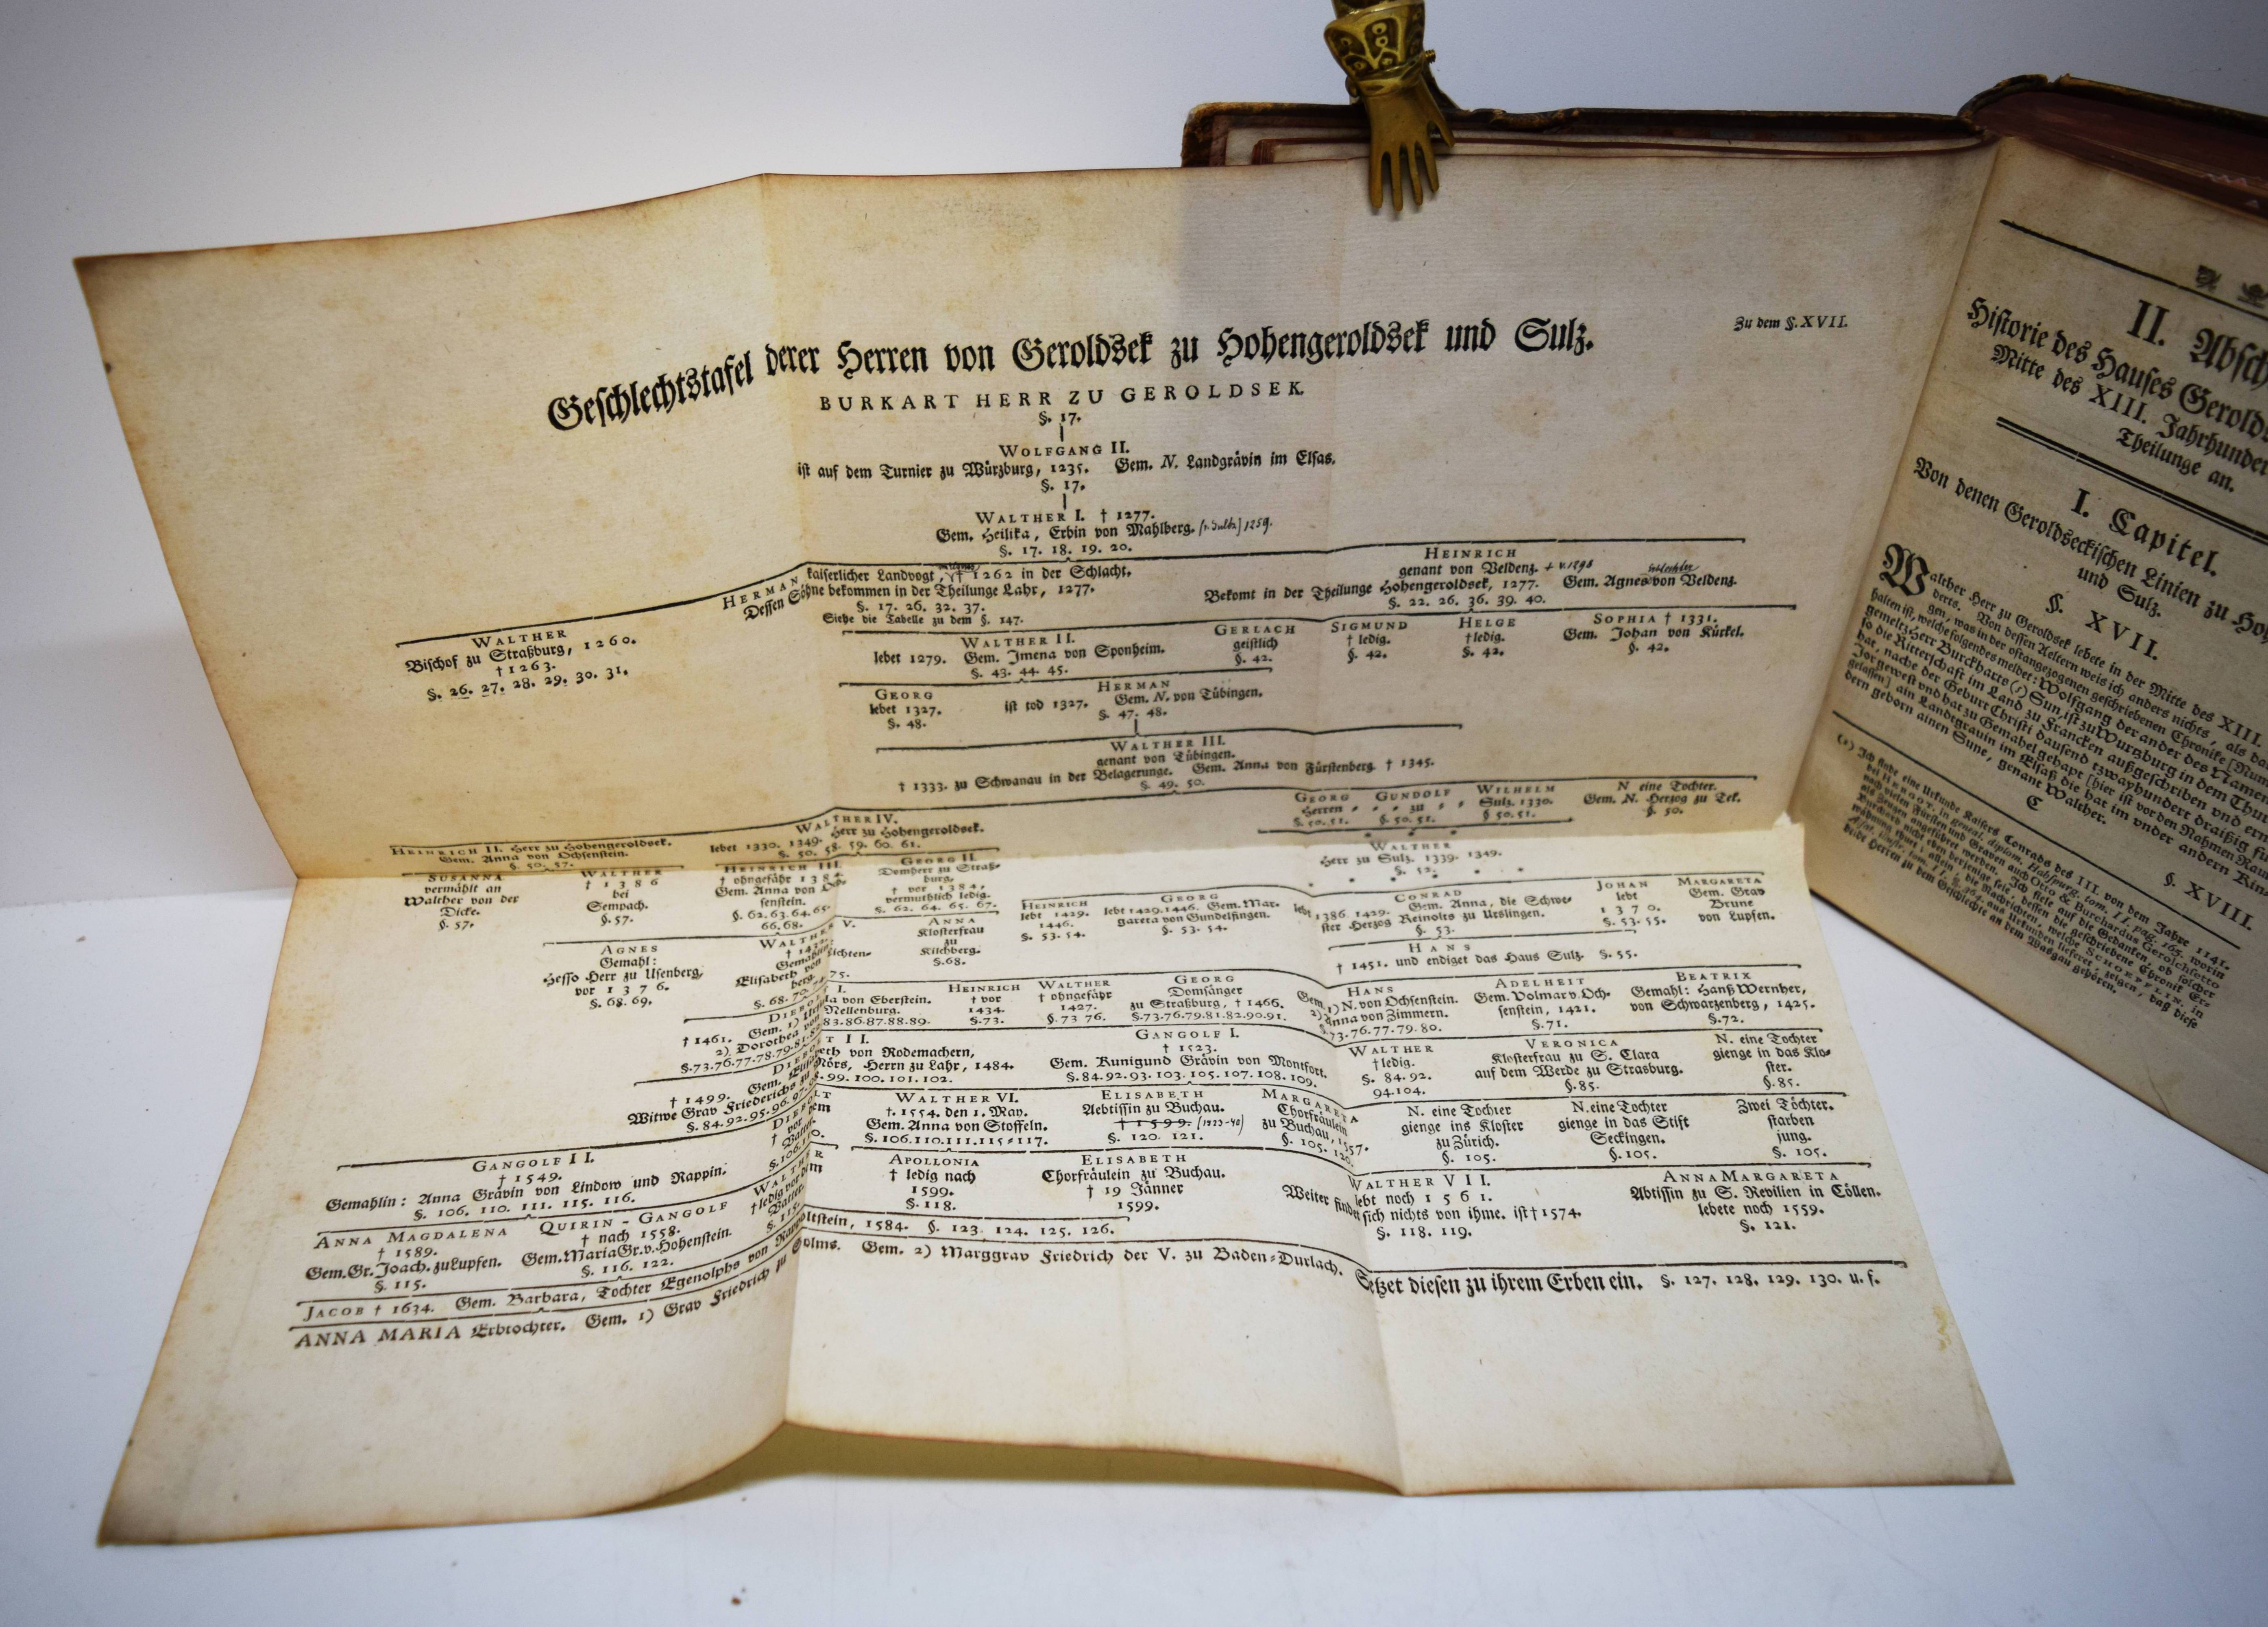 Zu dem §. XVII.
Geschlechtstafel derer Herren von Geroldsek zu Hohengeroldsek und Sulz.
BURKART HERR ZU GEROLDSEK.
§. 17.
WOLFGANG II.
ist auf dem Turnier zu Würzburg, 1235. Gem. N. Landgrävin im Elsas.
§. 17.
WALTHER I. † 1277.
Gem. Heilika, Erbin von Mahlberg. 1259.
§. 17. 18. 19. 20.
WALTHER
Bischof zu Straßburg, 1260.
† 1263.
§. 26. 27. 28. 29. 30. 31.
HERMAN kaiserlicher Landvogt, † 1262 in der Schlacht.
Dessen Söhne bekommen in der Theilunge Lahr, 1277.
§. 17. 26. 32. 37.
Siehe die Tabelle zu dem §. 147.
HEINRICH
genant von Veldenz. † v. 1298
Bekomt in der Theilunge Hohengeroldsek, 1277. Gem. Agnes von Veldenz.
§. 22. 26. 36. 39. 40.
WALTHER II.
lebet 1279. Gem. Imena von Sponheim.
§. 43. 44. 45.
GERLACH
geistlich
§. 42.
SIGMUND
† ledig.
§. 42.
HELGE
† ledig.
§. 42.
SOPHIA † 1331.
Gem. Johan von Kürkel.
§. 42.
GEORG
lebet 1327.
§. 48.
HERMAN
ist tod 1327. Gem. N. von Tübingen.
§. 47. 48.
WALTHER III.
genant von Tübingen.
† 1333. zu Schwanau in der Belagerunge. Gem. Anna von Fürstenberg † 1345.
§. 49. 50.
HEINRICH II. Herr zu Hohengeroldsek.
Gem. Anna von Ochsenstein.
§. 50. 57.
WALTHER IV.
Herr zu Hohengeroldsek.
lebet 1330. 1349.
§. 50. 58. 59. 60. 61.
GEORG GUNDOLF WILHELM
Herren zu Sulz. 1330.
§. 50. 51. § 50. 51. § 50. 51.
N eine Tochter.
Gem. N. Herzog zu Tek.
§. 50.
SUSANNA
vermählt an
Walther von der
Dicke.
§. 57.
WALTHER
† 1386
bei
Sempach.
§. 57.
HEINRICH III.
† ohngefähr 138
Gem. Anna von Och-
senstein.
§. 62. 63. 64. 65.
66. 68.
GEORG II.
Domherr zu Straß-
burg,
† vor 1384.
vermuthlich ledig.
§. 62. 64. 65. 67.
WALTHER
Herr zu Sulz. 1339. 1349.
§. 52.
HEINRICH
lebt 1429.
1446.
§. 53. 54.
GEORG
lebt 1429. 1446. Gem. Mar-
gareta von Gundelfingen.
§. 53. 54.
CONRAD
lebt 1386. 1429. Gem. Anna, die Schwe-
ster Herzog Reinolts zu Urslingen.
§. 53.
JOHAN
lebt
1370.
§. 53. 55.
MARGARETA
Gem. Grav
Brune
von Lupfen.
AGNES
Gemahl:
Hesso Herr zu Usenberg,
vor 1376.
§. 68. 69.
WALTHER V.
Gemahlin
Elisabeth von Lichten-
berg
§. 68. 70. 75.
ANNA
Klosterfrau
zu
Kilchberg.
§. 68.
HANS
† 1451. und endiget das Haus Sulz. §. 55.
I.
† 1461. Gem. 1) von Eberstein.
2) Dorothea von Nellenburg.
§. 73. 76. 77. 78. 79. 83. 86. 87. 88. 89.
HEINRICH
† vor
1434.
§. 73.
WALTHER
† ohngefähr
1427.
§. 73 76.
GEORG
Domsänger
zu Straßburg, † 1466.
§. 73. 76. 79. 81. 82. 90. 91.
HANS
Gem. 1) N. von Ochsenstein.
2) Anna von Zimmern.
73. 76. 77. 79. 80.
ADELHEIT
Gem. Volmar v. Och-
senstein, 1421.
§. 71.
BEATRIX
Gemahl: Hanß Wernher,
von Schwarzenberg, 1425.
§. 72.
II.
† 1499. Gem. Elisabeth von Rodemachern,
Witwe Grav Friederichs zu Mörs, Herrn zu Lahr, 1484.
§. 84. 92. 95. 96. 99. 100. 101. 102.
GANGOLF I.
† 1523.
Gem. Kunigund Grävin von Montfort.
§. 84. 92. 93. 103. 105. 107. 108. 109.
WALTHER
† ledig.
§. 84. 92.
94. 104.
VERONICA
Klosterfrau zu S. Clara
auf dem Werde zu Strasburg.
§. 85.
N. eine Tochter
gienge in das Klo-
ster.
§. 85.
GANGOLF II.
† 1549.
Gemahlin: Anna Grävin von Lindow und Rappin.
§. 106. 110. 111. 115. 116.
WALTHER VI.
†. 1554. den 1. May.
Gem. Anna von Stoffeln.
§. 106. 110. 111. 115-117.
ELISABETH
Aebtissin zu Buchau.
† 1599. (1523-40)
§. 120. 121.
MARGARETA
Chorfräulein
zu Buchau, 1557.
§. 105. 120.
N. eine Tochter
gienge ins Kloster
zu Zürich.
§. 105.
N. eine Tochter
gienge in das Stift
Seckingen.
§. 105.
Zwei Töchter.
starben
jung.
§. 105.
ANNA MAGDALENA
† 1589.
Gem. Gr. Joach. zu Lupfen.
§. 115.
QUIRIN-GANGOLF
† nach 1558.
Gem. Maria Gr. v. Hohenstein.
§. 116. 122.
WALTHER
† ledig vor dem
Vatter.
APOLLONIA
† ledig nach
1599.
§. 118.
ELISABETH
Chorfräulein zu Buchau.
† 19 Jänner
1599.
WALTHER VII.
lebt noch 1561.
Weiter findet sich nichts von ihme. ist † 1574.
§. 118. 119.
ANNA MARGARETA
Äbtissin zu S. Revilien in Cöllen.
lebete noch 1559.
§. 121.
JACOB † 1634. Gem. Barbara, Tochter Egenolphs von Rappoltstein, 1584. §. 123. 124. 125. 126.
ANNA MARIA Erbtochter. Gem. 1) Grav Friedrich zu Solms. Gem. 2) Marggrav Friedrich der V. zu Baden-Durlach. Setzet diesen zu ihrem Erben ein. §. 127. 128. 129. 130. u. f.
II. Absch
Historie des Hauses Gerolds
Mitte des XIII. Jahrhunder
Theilunge an.
I. Capitel.
Von denen Geroldseckischen Linien zu Ho
und Sulz.
§. XVII.
Walther Herr zu Geroldsek lebete in der Mitte des XIII.
derts. Von dessen Aeltern weis ich anders nichts, als da
gen, was in der oftangezogenen geschriebenen Chronike
halten ist, welche folgendes meldet: Wolfgang der ander des Namen
gemelt: Herr Burckharts Sun, ist zu Wurzburg in dem Thur
so die Ritterschaft im Land zu Francken außgeschriben und
hat, nache der Geburt Christi dausend tzwayhundert draißig
Jor gewest vnd hat zu Gemahel gehapt [hier ist vor den Nahmen Rau
gelassen] ain Landtgrauin im Elsaß die hat im vnder andern Kin
dern geborn ainen Sune, genant Walther.
C
§. XVIII.
Ich finde eine Urkunde Kaisers Conrads des III. von dem Jahre 1141.